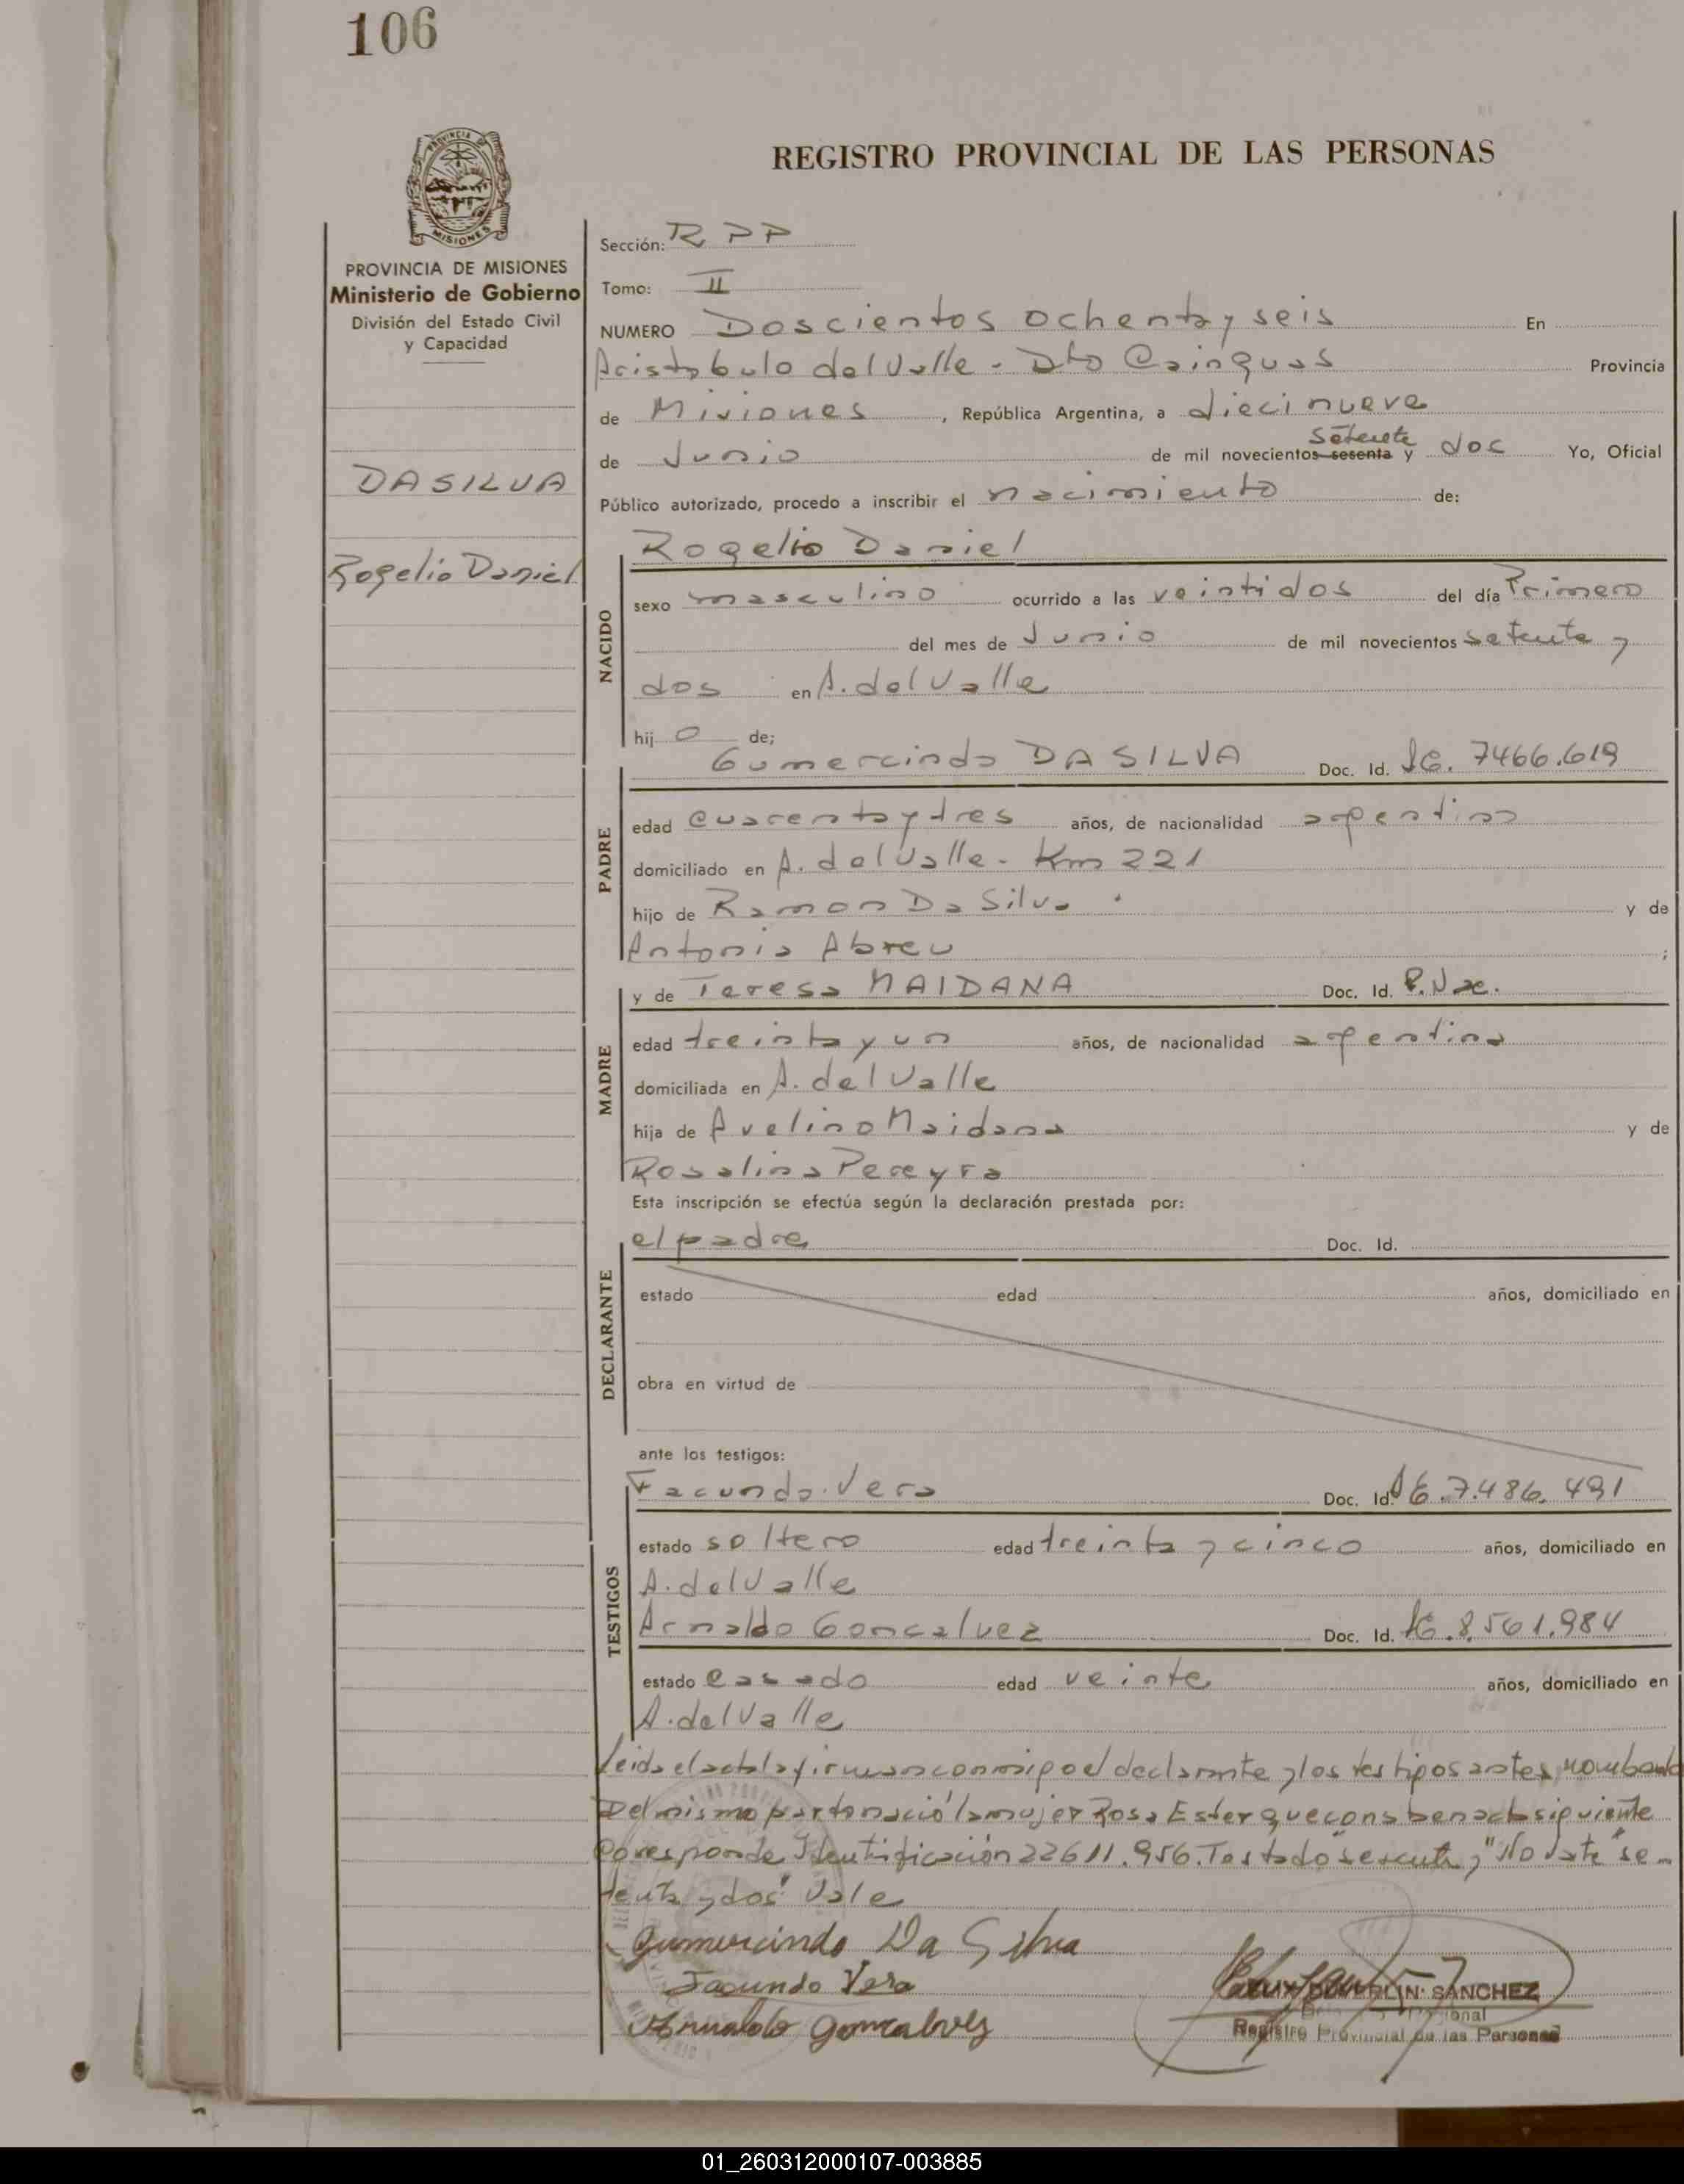 106
PROVINCIA DE MISIONES
REGISTRO PROVINCIAL DE LAS PERSONAS
PROVINCIA DE MISIONES
Ministerio de Gobierno
División del Estado Civil
y Capacidad
DA SILVA
Rogelio Daniel
Sección: RPP
Tomo: II
NUMERO Doscientos ochenta y seis En
Aristobulo del Valle - Dto Cainguas Provincia
de Misiones, República Argentina, a diecinueve
de Junio de mil novecientos sesenta setenta y dos Yo, Oficial
Público autorizado, procedo a inscribir el nacimiento de:
NACIDO
Rogelio Daniel
sexo masculino ocurrido a las veintidos del día Primero
del mes de Junio de mil novecientos setenta y
dos en A. del Valle
hij o de;
PADRE
Gumercindo DA SILVA Doc. Id. 7466.619
edad cuarenta y tres años, de nacionalidad argentina
domiciliado en A. del Valle - Km 221
hijo de Ramon Da Silva y de
Antonia Abreu ;
MADRE
y de Teresa MAIDANA Doc. Id.
edad treinta y un años, de nacionalidad argentina
domiciliada en A. del Valle
hija de Avelino Maidana y de
Rosalina Pereyra
Esta inscripción se efectúa según la declaración prestada por:
DECLARANTE
el padre Doc. Id.
estado edad años, domiciliado en
obra en virtud de
ante los testigos:
TESTIGOS
Facundo Vera Doc. Id. 7.486.491
estado soltero edad treinta y cinco años, domiciliado en
A. del Valle
Arnaldo Goncalvez Doc. Id. 8.561.984
estado casado edad veinte años, domiciliado en
A. del Valle
Leida el acta la firman conmigo el declarante y los testigos antes nombrado
Del mismo parto nació la mujer Rosa Ester que consta en acta siguiente
Coresponde Identificación 22611.956. Testado "sesenta y" No Vale "se-
tenta y dos" Vale
Gumercindo Da Silva
Facundo Vera
Arnaldo Goncalvez
SANCHEZ
Registro Provincial de las Personas
01_260312000107-003885